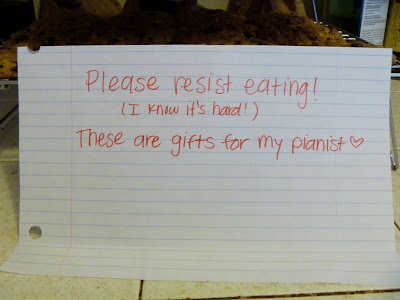 Please resist eating!
(I know it's hard!)
These are gifts for my pianist ♡